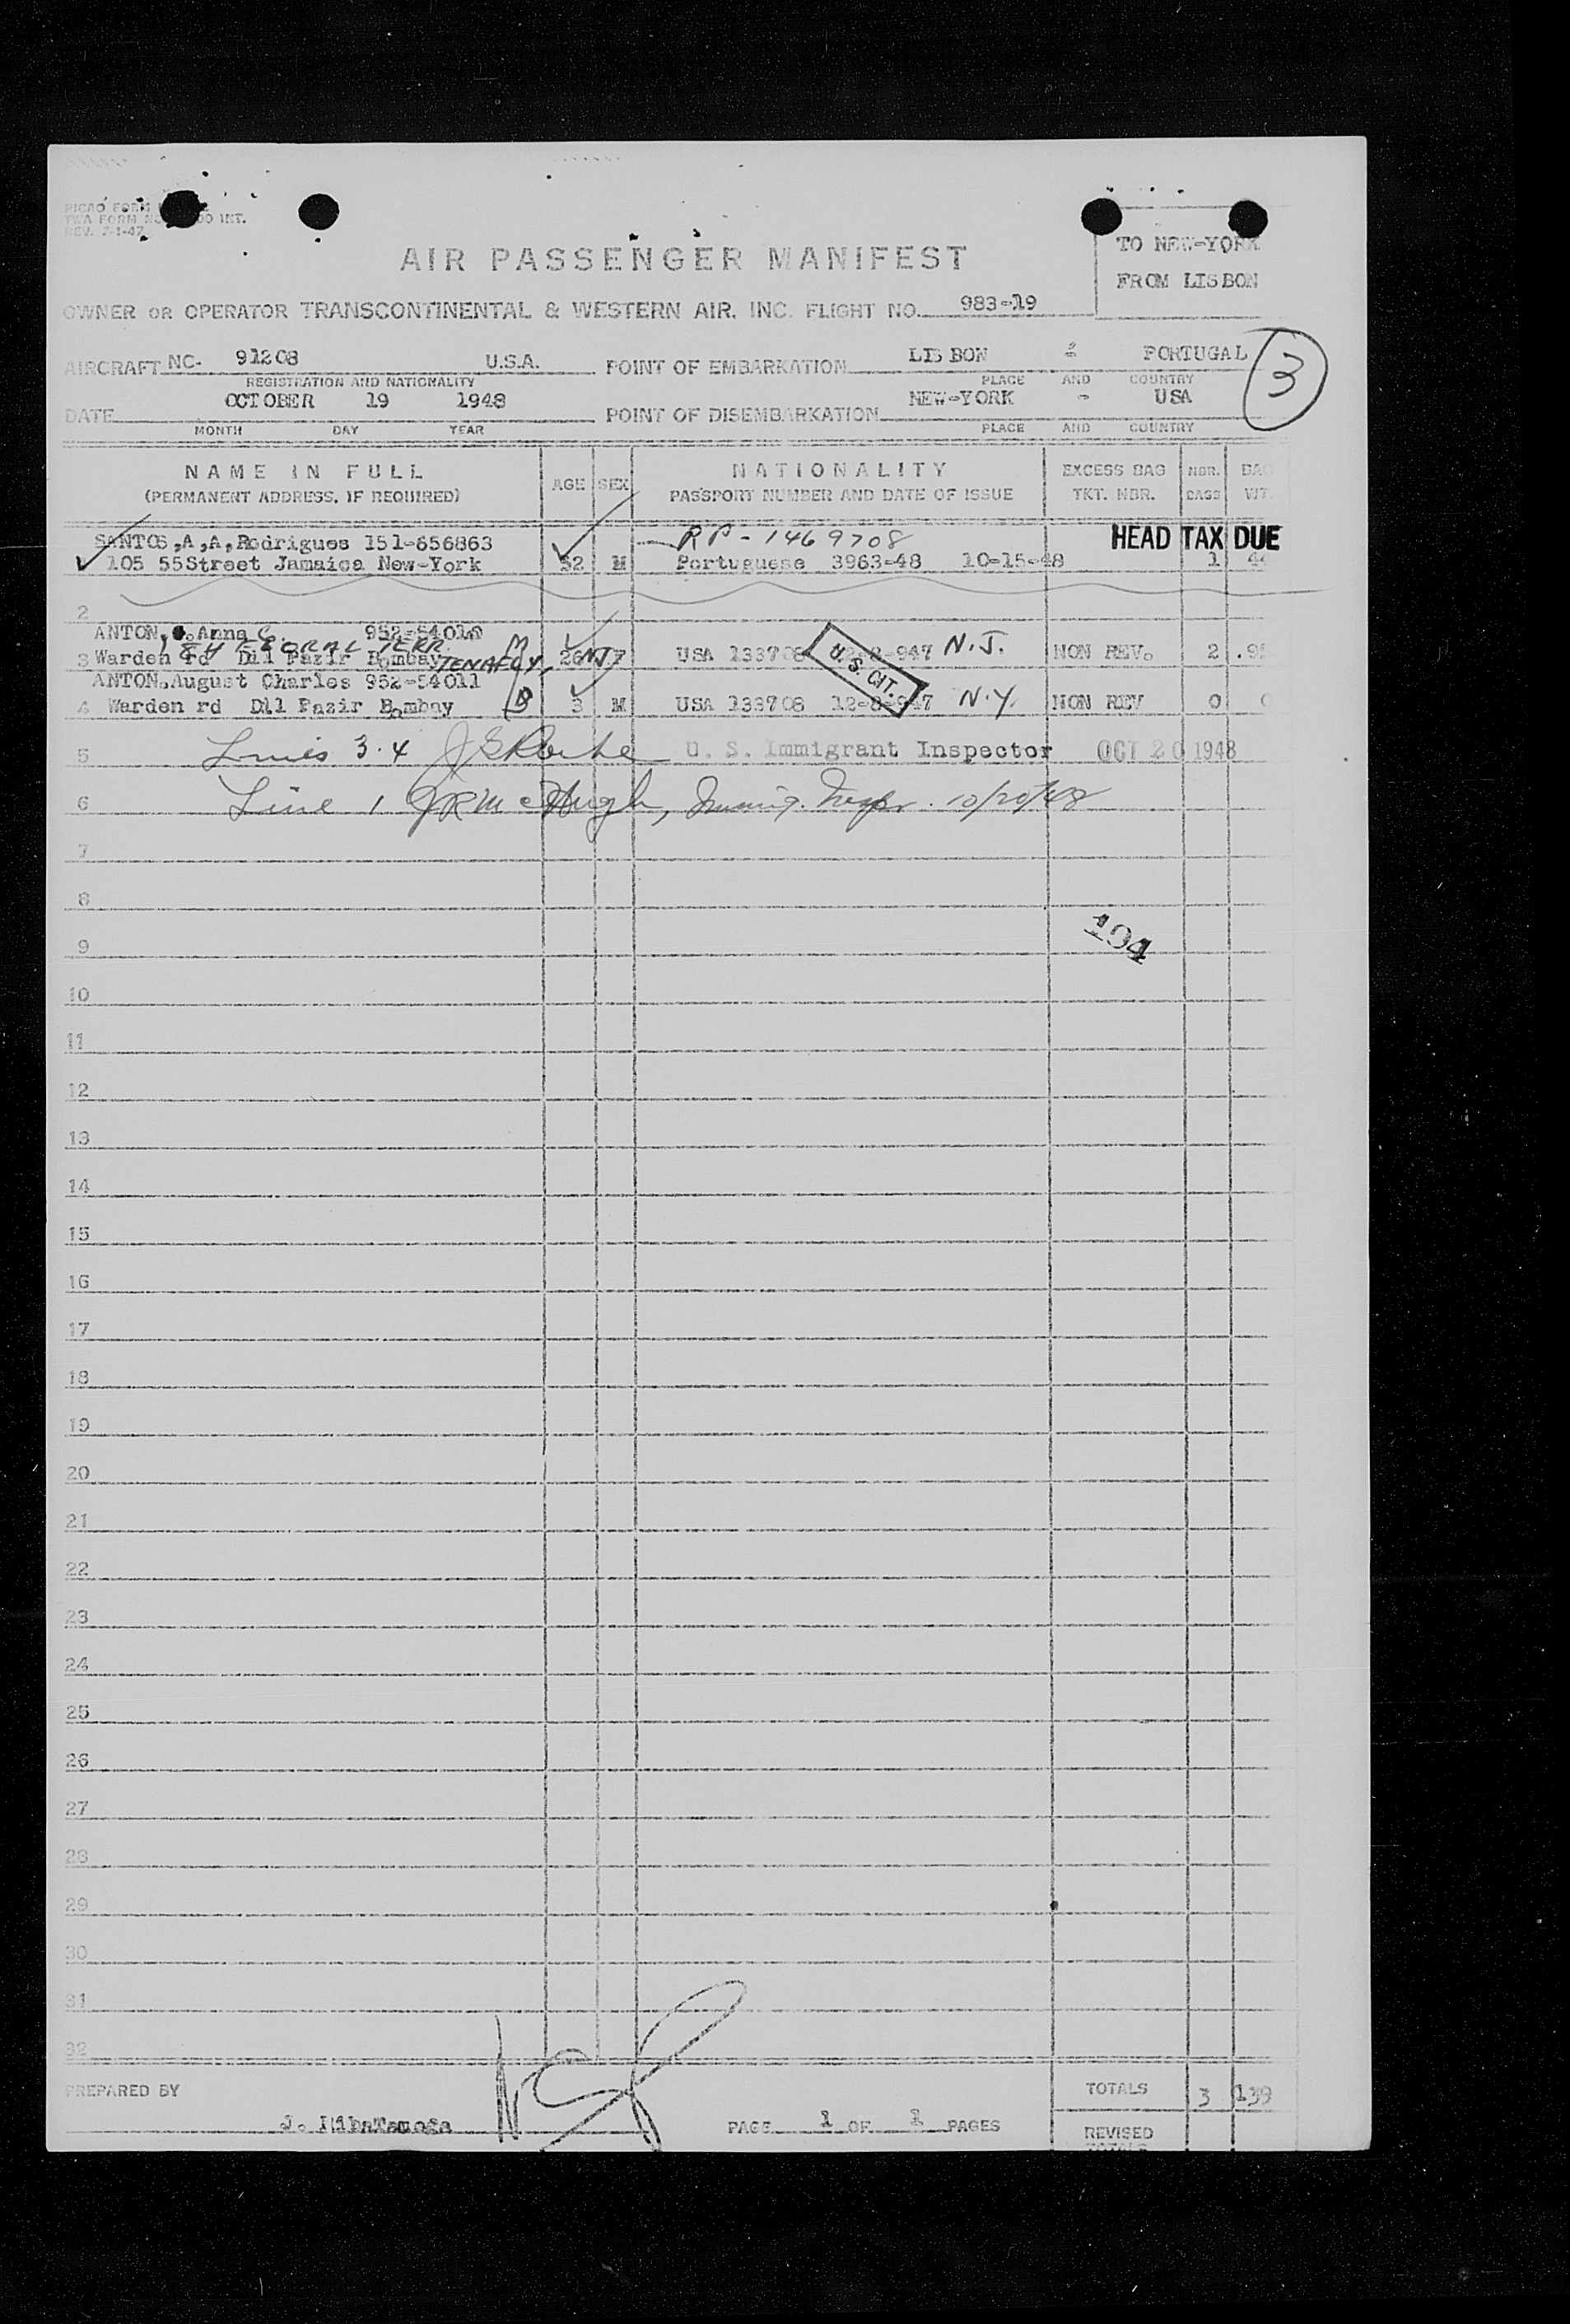 PICAO FORM
TWA FORM NO. 00 INT.
REV. 7-1-47
AIR PASSENGER MANIFEST
TO NEW-YORK
FROM LISBON
OWNER OR OPERATOR TRANSCONTINENTAL & WESTERN AIR, INC. FLIGHT NO. 983-19
AIRCRAFT NC- 91208 U.S.A. POINT OF EMBARKATION LISBON - PORTUGAL
3
REGISTRATION AND NATIONALITY PLACE AND COUNTRY
DATE OCTOBER 19 1948 POINT OF DISEMBARKATION NEW-YORK - USA
MONTH DAY YEAR PLACE AND COUNTRY
NAME IN FULL AGE SEX NATIONALITY EXCESS BAG NBR. BAG
(PERMANENT ADDRESS, IF REQUIRED) PASSPORT NUMBER AND DATE OF ISSUE TKT. NBR. BAGS WT.
SANTOS,A,A,Rodrigues 151-656863 RP-1469708 HEAD TAX DUE
105 55Street Jamaica New-York 32 M Portuguese 3963-48 10-15-48 1 44
2
ANTON, Anna C. 952-54010
TERR. M
3 Warden rd Dil Pazir Bombay TENAFLY, NJ 26 F USA 133708 947 N.J. NON REV. 2
U.S. CIT.
ANTON.August Charles 952-54011
4 Warden rd Dil Pazir Bombay B 3 M USA 133708 12-8-947 N.Y. NON REV 0
5 Lines 3.4 U. S. Immigrant Inspector OCT 20 1948
6 Line 1 JR McHugh, Immig. Inspr. 10/20/48
7
8
194
9
10
11
12
13
14
15
16
17
18
19
20
21
22
23
24
25
26
27
28
29
30
31
32
PREPARED BY TOTALS 3 139
J. PAGE 1 OF 1 PAGES
REVISED
TOTALS